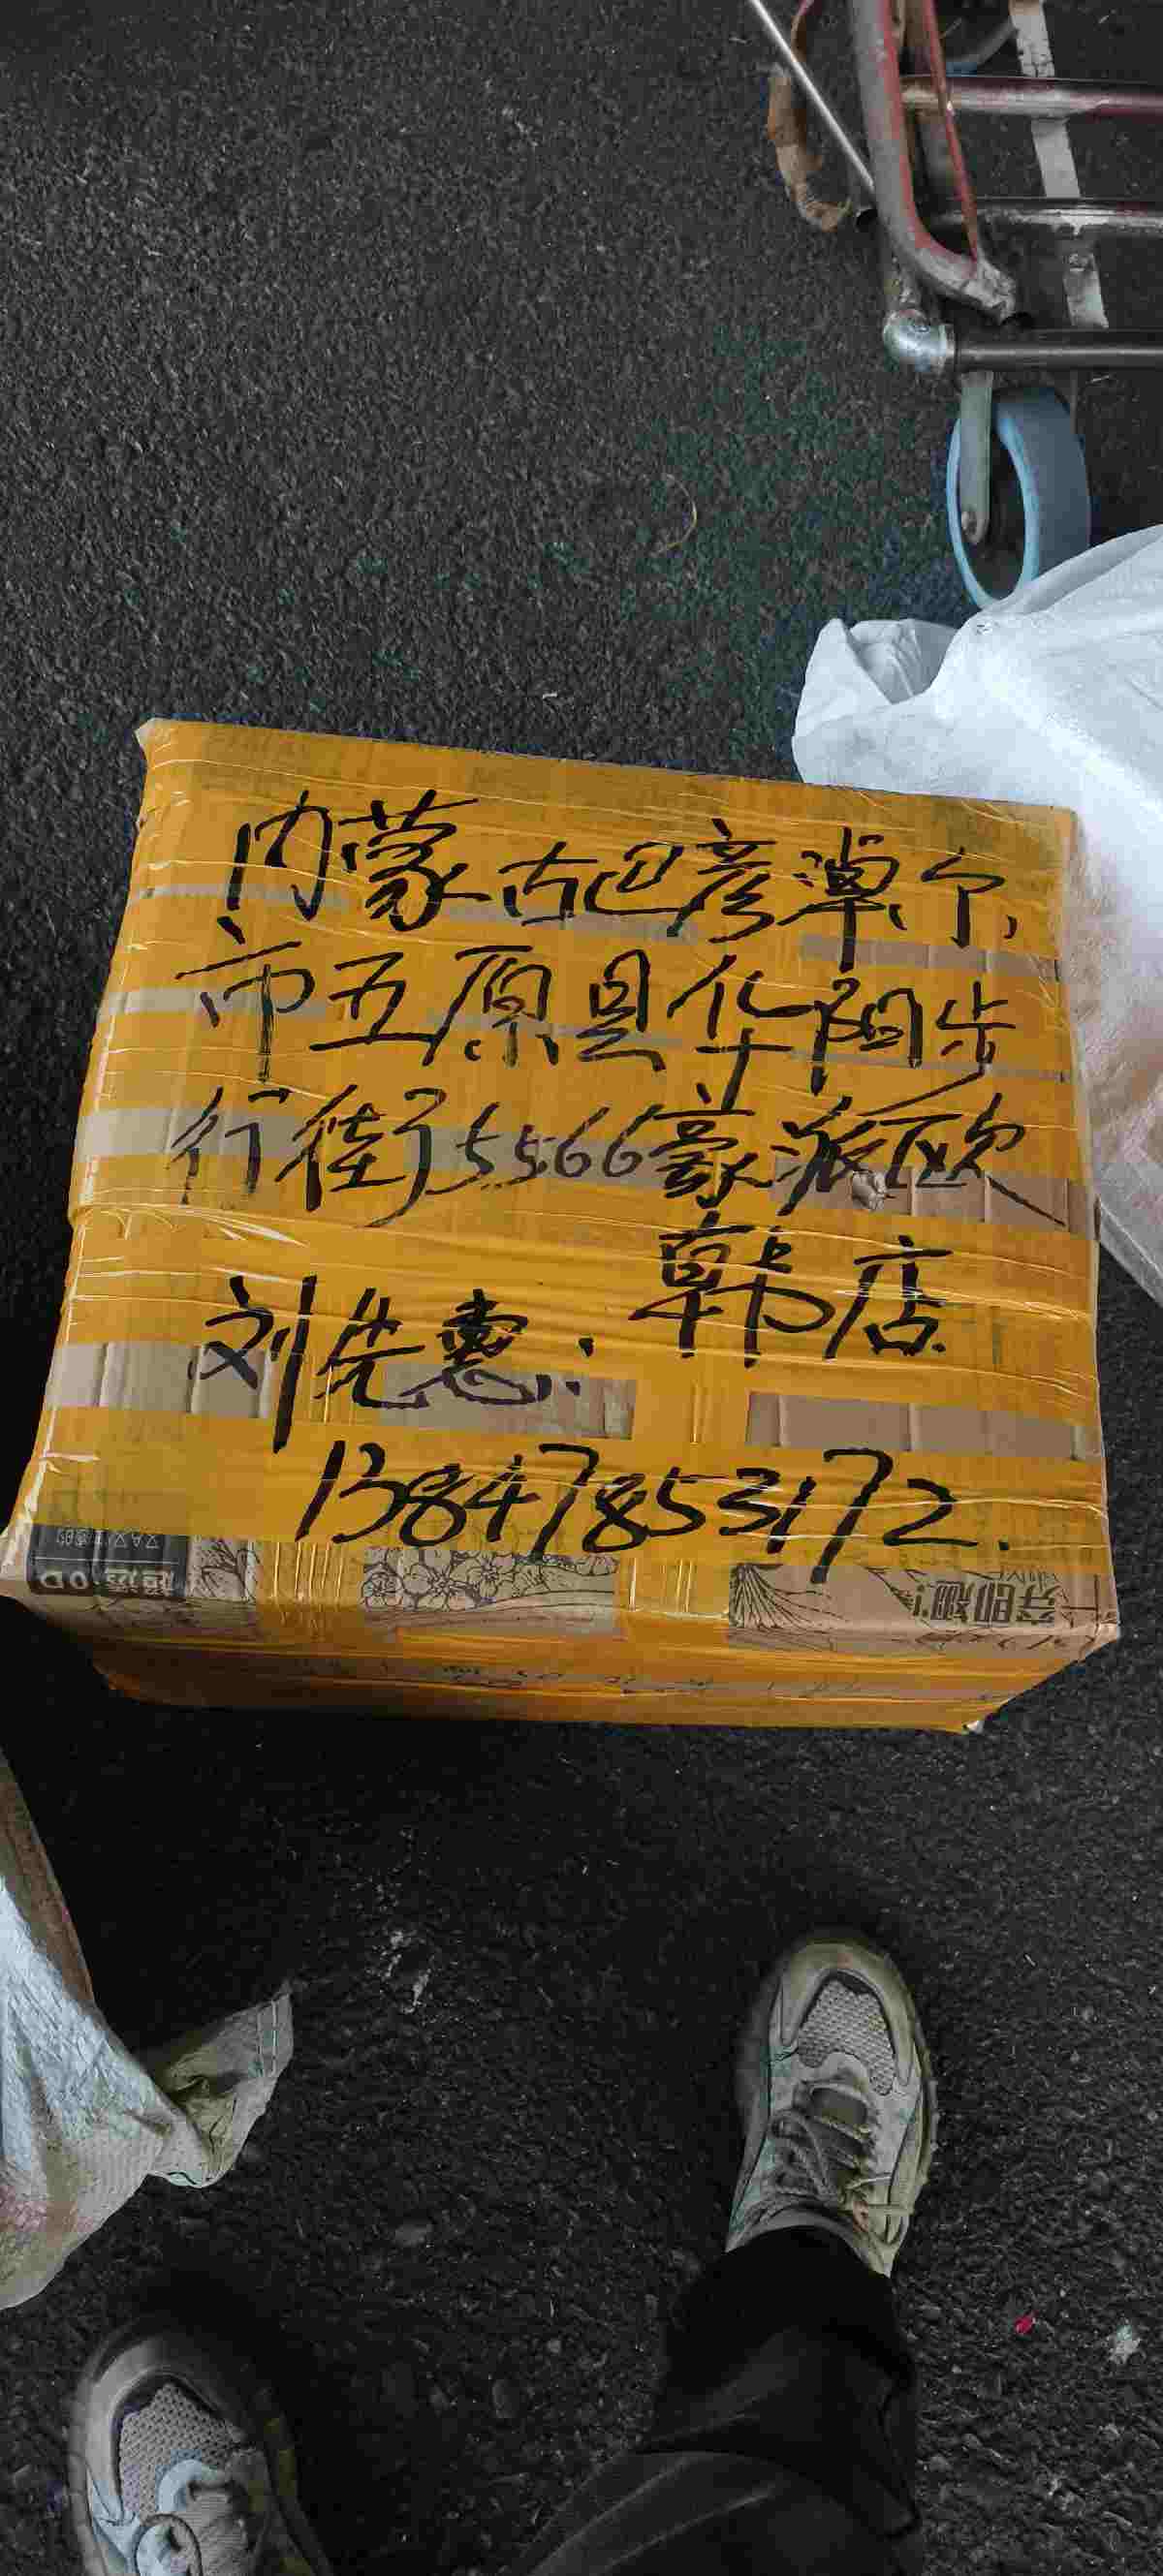 内蒙古巴彦淖尔
市五原县华阳步
行街5566豪派欧
韩店
刘先惠:
13847853172.